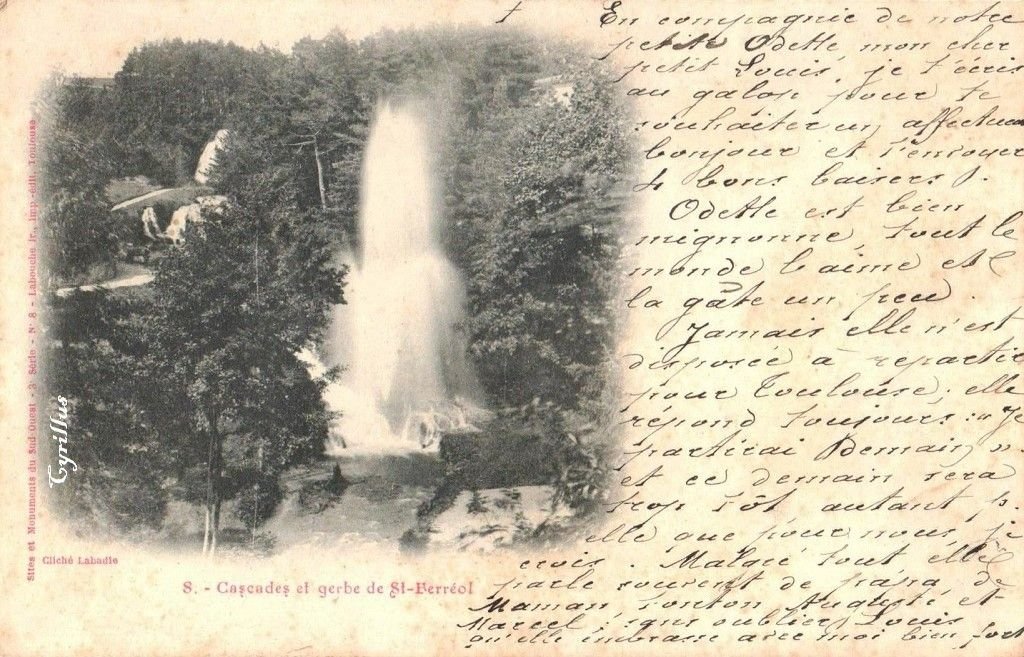 En compagnie de notre
petite Odette, mon cher
petit Louis, je t'écris
au galop pour te
souhaiter un affectueux
bonjour et t'envoyer
4 bons baisers.
Odette est bien
mignonne, tout le
monde l'aime et
la gâte un peu.
Jamais elle n'est
disposée à repartir
pour Toulouse; elle
répond toujours: "Je
partirai Demain"
et ce demain sera
trop tôt autant p.
elle que pour nous, je
crois. Malgré tout, elle
parle souvent de papa, de
Maman, tonton Auguste et
Marcel; sans oublier Louis
qu'elle embrasse avec moi bien fort
Sites et Monuments du Sud-Ouest - 3e Série - No 8 - Labouche fr., Imp.-édit. Toulouse
Cyrillus
Cliché Labadie
8. - Cascades et gerbe de St-Ferréol